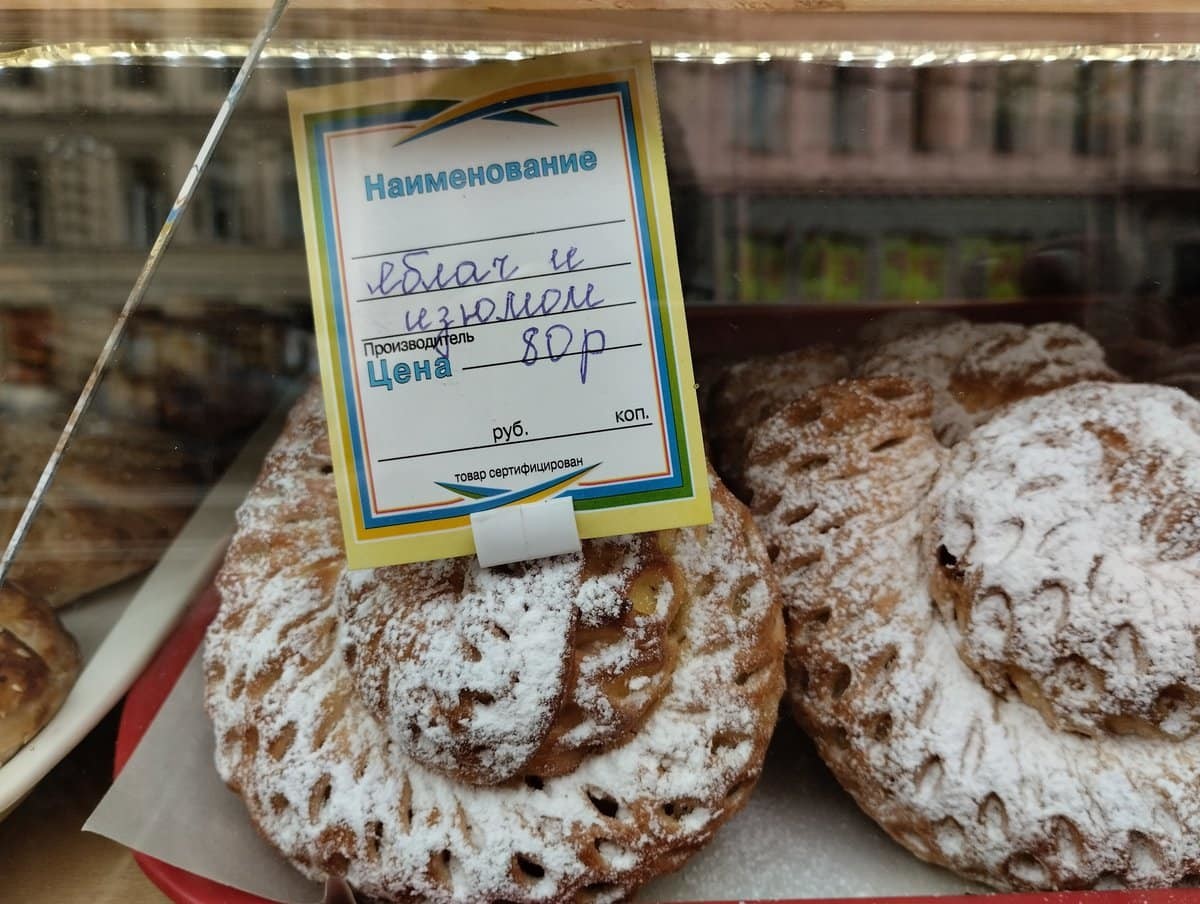 Наименование
яблоч и
изюмом
Производитель
Цена 80р
руб. коп.
товар сертифицирован